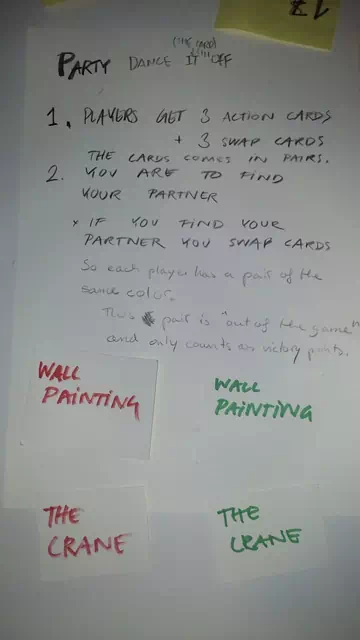 PARTY DANCE IT OFF
1. PLAYERS GET 3 ACTION CARDS
+ 3 SWAP CARDS
THE CARDS COMES IN PAIRS.
2. YOU ARE TO FIND
YOUR PARTNER
x IF YOU FIND YOUR
PARTNER YOU SWAP CARDS
So each player has a pair of the
same color.
This pair is "out of the game"
and only counts as victory points.
WALL
PAINTING
WALL
PAINTING
THE
CRANE
THE
CRANE